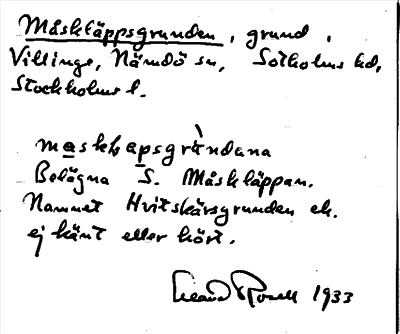 Måskläppsgrunden, grund,
Villinge, Nämdö sn, Sotholms hd,
Stockholms l.
maskləpsgrùndana
Belägna S. Måskläppan.
Namnet Hvitskärsgrunden ek.
ej känt eller hört.
1933